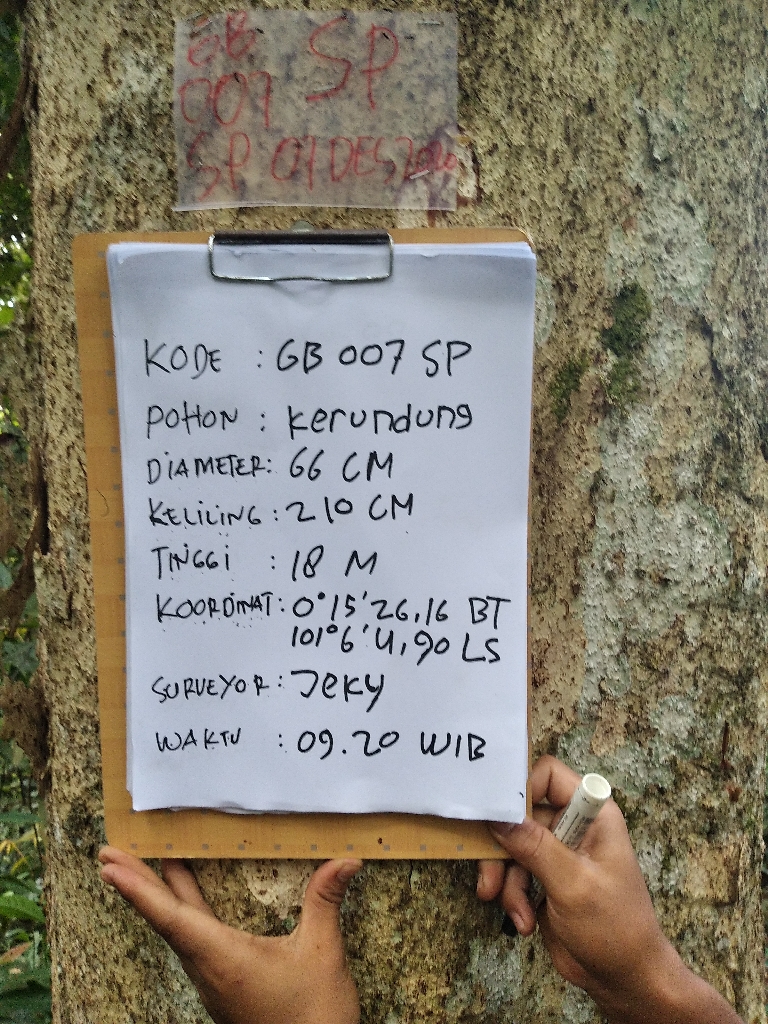 GB SP
007
SP 07 DES 2020
KODE : GB 007 SP
POHON : Kerundung
DIAMETER: 66 CM
KELILING : 210 CM
TINGGI : 18 M
KOORDINAT: 0°15'26,16 BT
101°6'4,90 LS
SURVEYOR : Jeky
WAKTU : 09.20 WIB